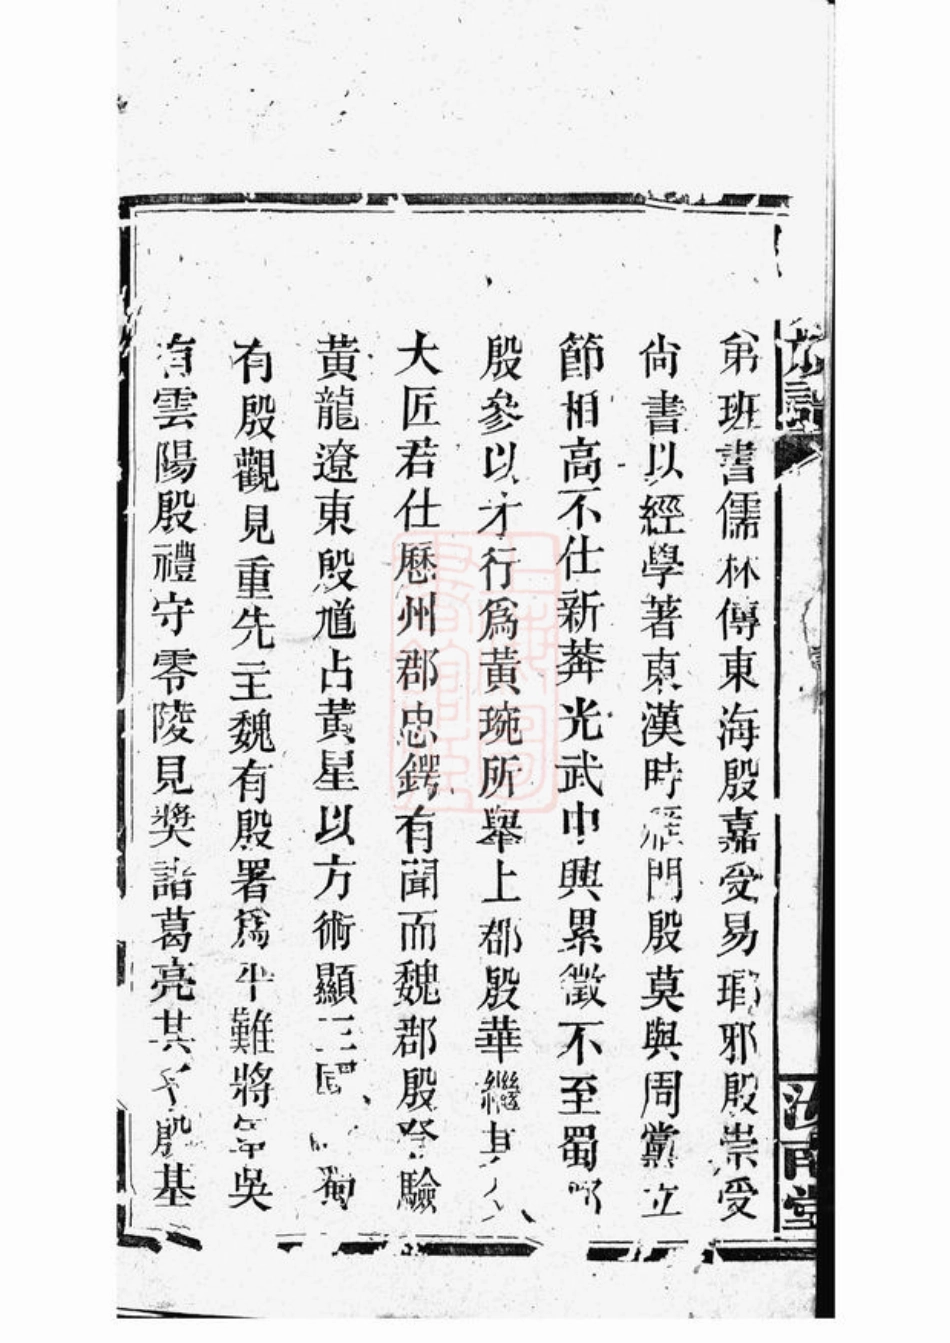 弟班書儒林傳東海殷嘉受易瑯邪殷崇受
尚書以經學著東漢時雁門殷莫與周黨立
節相高不仕新莽光武中興累徵不至蜀郡
殷參以才行爲黃琬所舉上郡殷華繼其
大匠君仕歷州郡忠鍔有聞而魏郡殷登驗
黃龍遼東殷馗占黃星以方術顯三國時蜀
有殷觀見重先主魏有殷署爲平難將軍吳
有雲陽殷禮守零陵見獎諸葛亮其子殷基
汝南堂